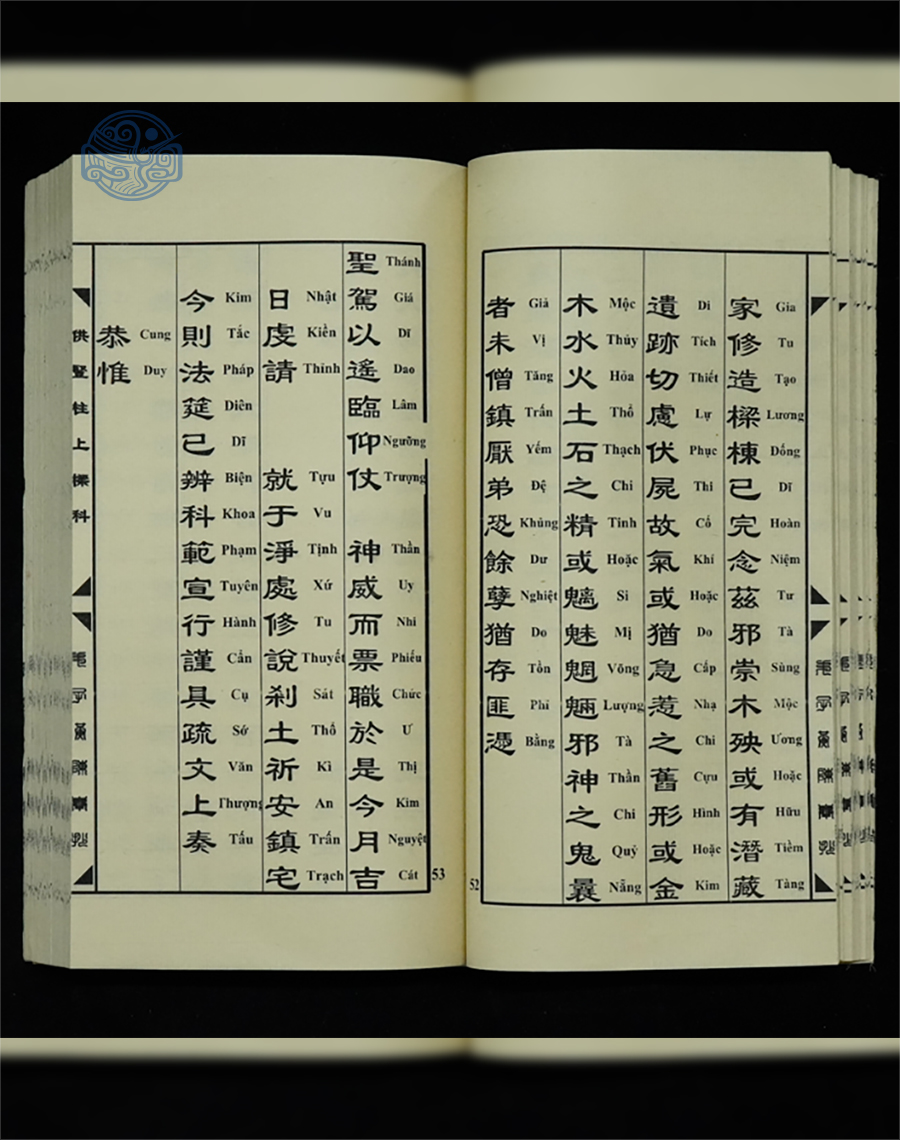 家修造樑棟已完念茲邪崇木殃或有潛藏
Gia Tu Tạo Lương Đống Dĩ Hoàn Niệm Tư Tà Sùng Mộc Ương Hoặc Hữu Tiềm Tàng
遺跡切慮伏屍故氣或猶急惹之舊形或金
Di Tích Thiết Lự Phục Thi Cố Khí Hoặc Do Cấp Nhạ Chi Cựu Hình Hoặc Kim
木水火土石之精或魑魅魍魎邪神之鬼曩
Mộc Thủy Hỏa Thổ Thạch Chi Tinh Hoặc Si Mị Võng Lượng Tà Thần Chi Quỷ Nẵng
者未僧鎮厭弟恐餘孽猶存匪憑
Giả Vị Tăng Trấn Yếm Đệ Khủng Dư Nghiệt Do Tồn Phỉ Bằng
52
聖駕以遙臨仰仗神威而票職於是今月吉
Thánh Giá Dĩ Dao Lâm Ngưỡng Trượng Thần Uy Nhi Phiếu Chức Ư Thị Kim Nguyệt Cát
日虔請就于淨處修說刹土祈安鎮宅
Nhật Kiền Thỉnh Tựu Vu Tịnh Xứ Tu Thuyết Sát Thổ Kì An Trấn Trạch
今則法筵已辨科範宣行謹具疏文上奏
Kim Tắc Pháp Diên Dĩ Biện Khoa Phạm Tuyên Hành Cẩn Cụ Sớ Văn Thượng Tấu
恭惟
Cung Duy
供豎柱上樑科
53